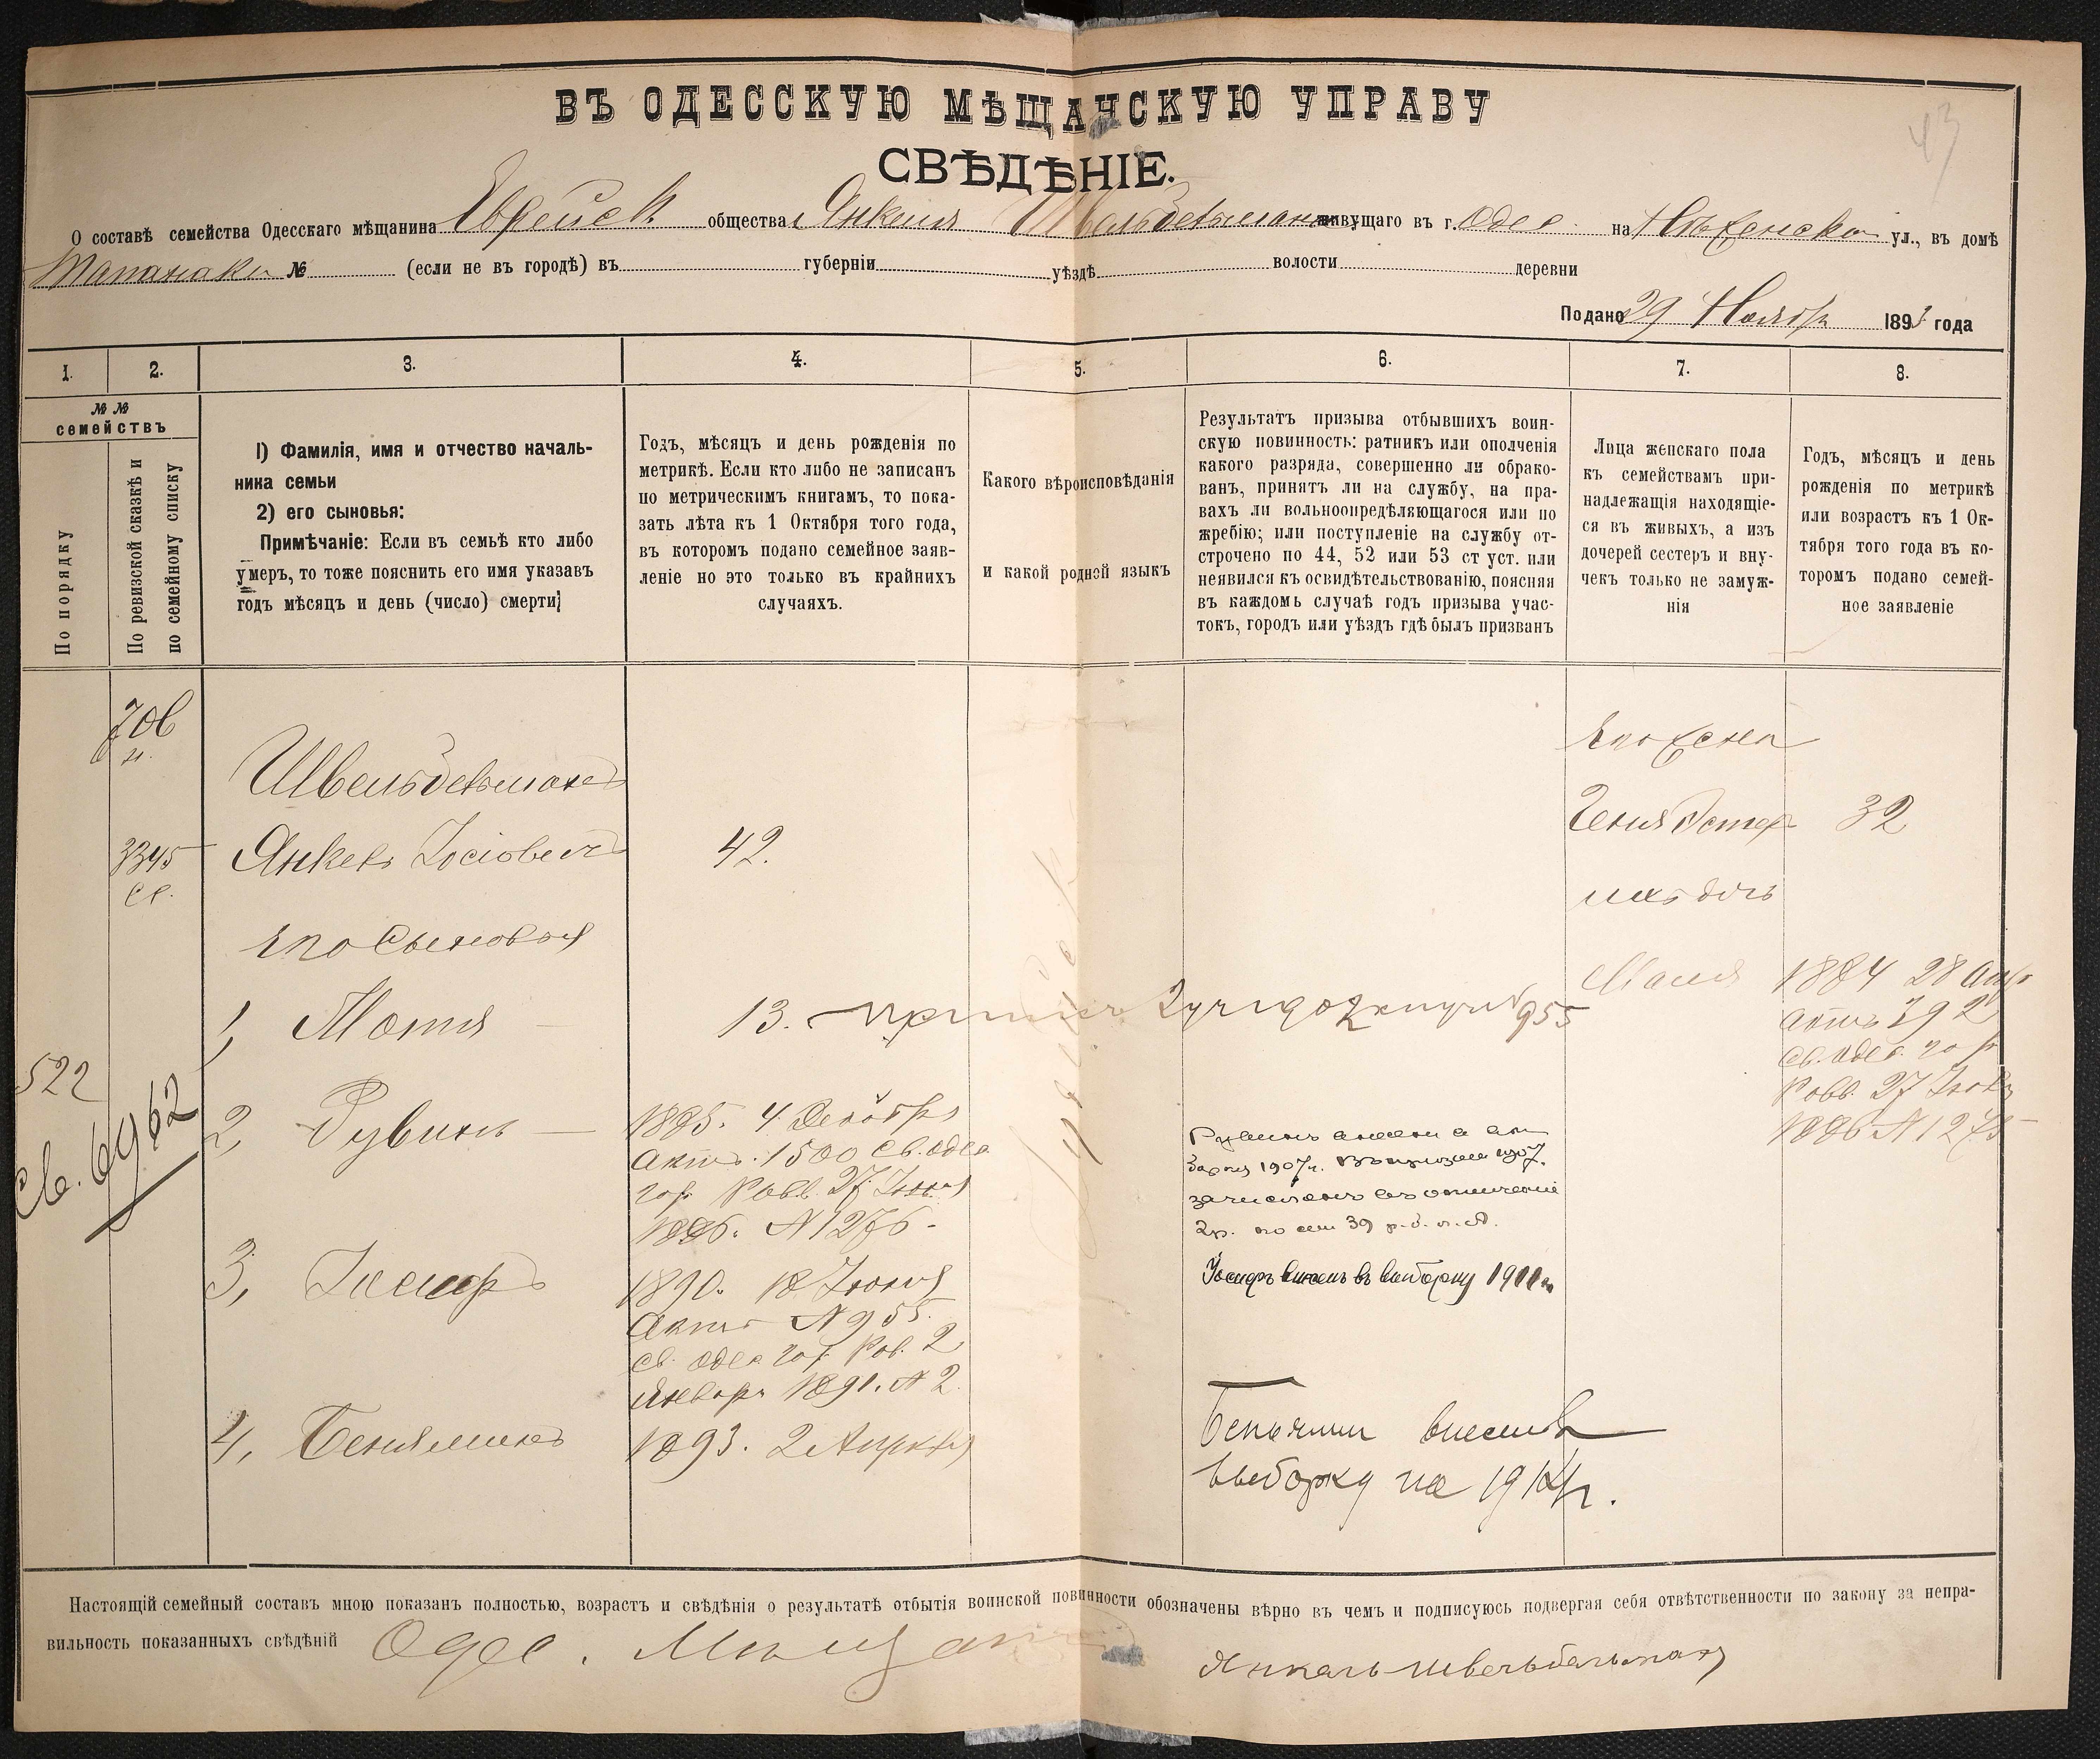 43
ВЪ ОДЕССКУЮ МѢЩАНСКУЮ УПРАВУ
СВѢДѢНІЕ.
О составѣ семейства Одесскаго мѣщанина Еврейск общества Янкеля Швельдельмана живущаго въ г. Одес. на Нѣженской ул., въ домѣ
№ (если не въ городѣ) въ губерніи уѣздѣ волости деревни
Подано 29 Ноября 1893 года
1. 2. 3. 4. 5. 6. 7. 8.
№ №
семействъ
По порядку
По ревизской сказкѣ и
по семейному списку
1) Фамилія, имя и отчество началь-
ника семьи
2) его сыновья:
Примѣчаніе: Если въ семьѣ кто либо
умеръ, то тоже пояснить его имя указавъ
годъ мѣсяцъ и день (число) смерти;
Годъ, мѣсяцъ и день рожденія по
метрикѣ. Если кто либо не записанъ
по метрическимъ книгамъ, то пока-
зать лѣта къ 1 Октября того года,
въ которомъ подано семейное заяв-
леніе но это только въ крайнихъ
случаяхъ.
Какого вѣроисповѣданія
и какой родной языкъ
Результатъ призыва отбывшихъ воин-
скую повинность: ратникъ или ополченія
какого разряда, совершенно ли обрако-
ванъ, принятъ ли на службу, на пра-
вахъ ли вольноопредѣляющагося или по
жребію; или поступленіе на службу от-
строчено по 44, 52 или 53 ст уст. или
неявился къ освидѣтельствованію, поясняя
въ каждомъ случаѣ годъ призыва учас-
токъ, городъ или уѣздъ гдѣ былъ призванъ
Лица женскаго пола
къ семействамъ при-
надлежащія находящіе-
ся въ живыхъ, а изъ
дочерей сестеръ и вну-
чекъ только не замуж-
нія
Годъ, мѣсяцъ и день
рожденія по метрикѣ
или возрастъ къ 1 Ок-
тября того года въ ко-
торомъ подано семей-
ное заявленіе
Его жена
Швельдельманъ
Геня Эстер 32
3345
Янкель Іосіовичъ 42.
ихъ дочь
Его Сыновья
Маля 1884 28 Апр
1, Мотя 13.
актъ 292
Св. Одес. гор
Равв. 27 Іюня
1886 N 1275
522
Св. 6962
2, Рувинъ 1885. 4 Декабря
актъ. 1500 Св. Одес
гор. Равв. 27 Іюня
1886. N 1276.
1907г.
39
3, Іосифъ 1890. 18 Іюня
актъ N 955.
Св. Одес. гор. Рав. 2
Января 1891. N 2.
Іосифъ внесенъ въ выборку 1911 г.
4, Бениаминъ 1893. 2 Апрѣля
Беньямин внесенъ в
выборку на 1914 г.
Еврейск
Настоящій семейный составъ мною показанъ полностью, возрастъ и свѣдѣнія о результатѣ отбытія воинской повинности обозначены вѣрно въ чемъ и подписуюсь подвергая себя отвѣтственности по закону за непра-
вильность показанныхъ свѣдѣній Одес. Мѣщан
Янкель Швельдельман